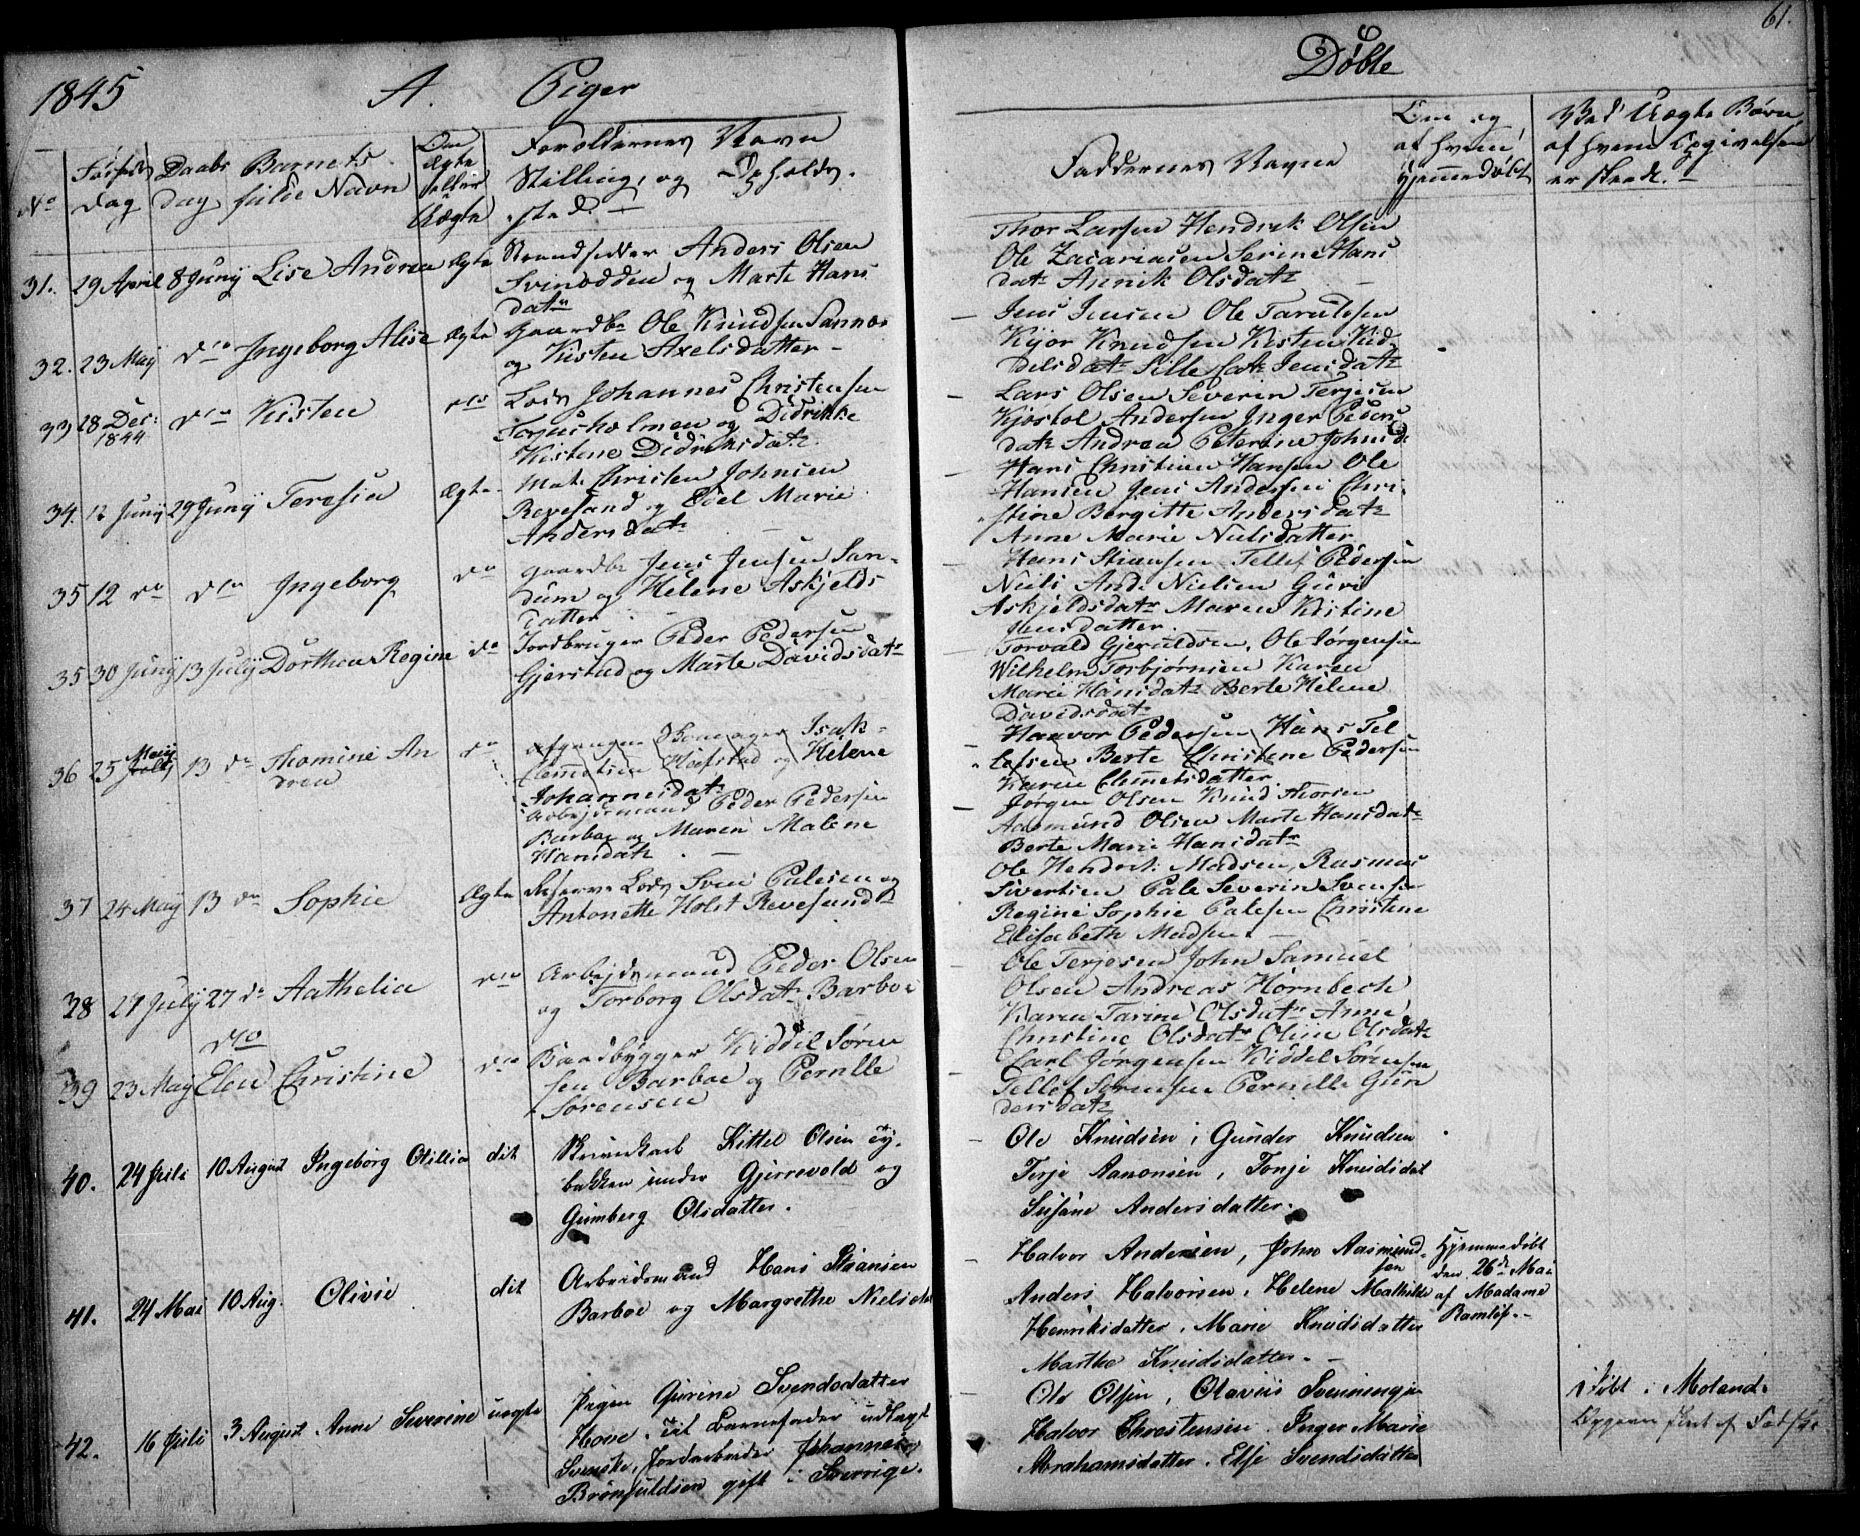 61.
1845 A. Piger
Døbte
No
Fødsels Dag
Daabs dag
Barnets fulde Navn
Om Ægte eller Uægte
Forældernes Navn Stilling, og Opholdssted.
Faddernes Navne
Om og af hvem hjemmedøbt
Ved Uægte Børn, af hvem Opgivelsen er skeet.
31. 29 April 8 Juny Lise Andrea Ægte Strandsidder Anders Olsen
Svinodden og Marte Hans
datr
Thor Larsen Hendrik Olsen
Ole Zacariasen Serine Hans
datr Annik Olsdatr
32. 23 May do Ingeborg Alise Ægte Gaardbr Ole Knudsen Sannæs
og Kisten Axelsdatter
Jens Jensen Ole Taraldsen
Kjør Knudsen Kisten Kid
delsdatr Sille Cat. Jensdatr
33 28 Dec: 1844 dto Kisten dto Lods Johannes Christensen
Terjusholmen og Didrikke
Kistene Didriksdatr.
Lars Olsen Severin Terjesen
Kjøstol Andersen Inger Peders
datr Andrea Peterine Johnsdr
34. 12 Juny 29 Juny Teresia Ægte Mat. Christen Johnsen
Revesand og Edel Marie
Andersdatr
Hans Christian Hansen Ole
Hansen Jens Andersen Chri
stine Bergitte Andersdatr
Anne Marie Nielsdatter
35 12 do dto Ingeborg do Gaardbr Jens Jensen San-
dum og Helene Askjelds
datter
Hans Stiansen Tellef Pedersen
Niels And. Nielsen Guri
Askjeldsdatr Maren Kistine
Jensdatter.
35 30 Juny 13 July Dorthea Regine do Jordbruger Peder Pedersen
Gjerstad og Marte Davidsdatr
Torvald Gjeruldsen, Ole Jørgensen
Wilhelm Torbjørnsen Karen
Marie Hansdatr Berte Helene
Davidsdatr
36 25 May July 13 do Thomine An
drea do afgangen Skomager Isak
Clemetsen Hafstad og Helene
Johannesdatr
Arbejdsmand Peder Pedersen
Barboe og Maren Malene
Hansdatr
Haavor Pedersen Hans Tel
lefsen Berte Christene Pedersen
Karen Clemetsdatter
Jørgen Olsen Knud Thorsen
Aasmund Olsen Marte Hansdatr
Berte Marie Hansdatr
37 24 May 13 do Sophie Ægte Reserve Lods Sven Palesen og
Antonette Holst Revesund
Ole Hendrik Madsen, Rasmus
Sivertsen Pale Severin Svensen
Regine Sophie Palesen Christine
Elisabeth Madsen.
38 21 July 27 do Aathelia dto Arbejdsmand Peder Olsen
og Torborg Olsdatr Barboe
Ole Terjesen John Samuel
Olsen Andreas Hornbech
Karen Tarine Olsdatr Anne
Christine Olsdatr Oline Olsdatr
39 23 May dto Elen Christine dto Baadbygger Kiddil Søren
sen Barboe og Pernille
Sørensen
Carl Jørgensen Kiddel Sørensen
Tellef Sørensen Pernille Gun
dersdatr
40. 24 Juli 10 August Ingeborg Otillia dit Kittel Olsen Ty-
bakken under Gjerrevold og
Gunberg Olsdatter.
Ole Knudsen, Gunder Knudsen
Terje Aanonsen, Tonje Knudsdat
Susane Andersdatter.
41. 24 Mai 10 Aug. Olivie dit Arbeidsmand Hans Stiansen
Barboe og Margrethe Nielsdat
Halvor Andersen, John Aasmund-
sen
Anders Halvorsen, Helene Mathilde
Henriksdatter, Marie Knudsdatter
Marthe Knudsdatter.
Hjemmedøbt
den 26de Mai
af Madame
Ramløf.
42. 16 Juli 3 August Anne Severine uægte Pigen Gurine Svendsdatter
Hove. Til Barnefader udlagt
Svenske, Jordarbeider Johannes
gift i Sverrige.
Ole Olsen, Olavus Svenningsen
Halvor Christensen. Inger Marie
Abrahamsdatter. Else Svendsdatter
Døbt i Moland.